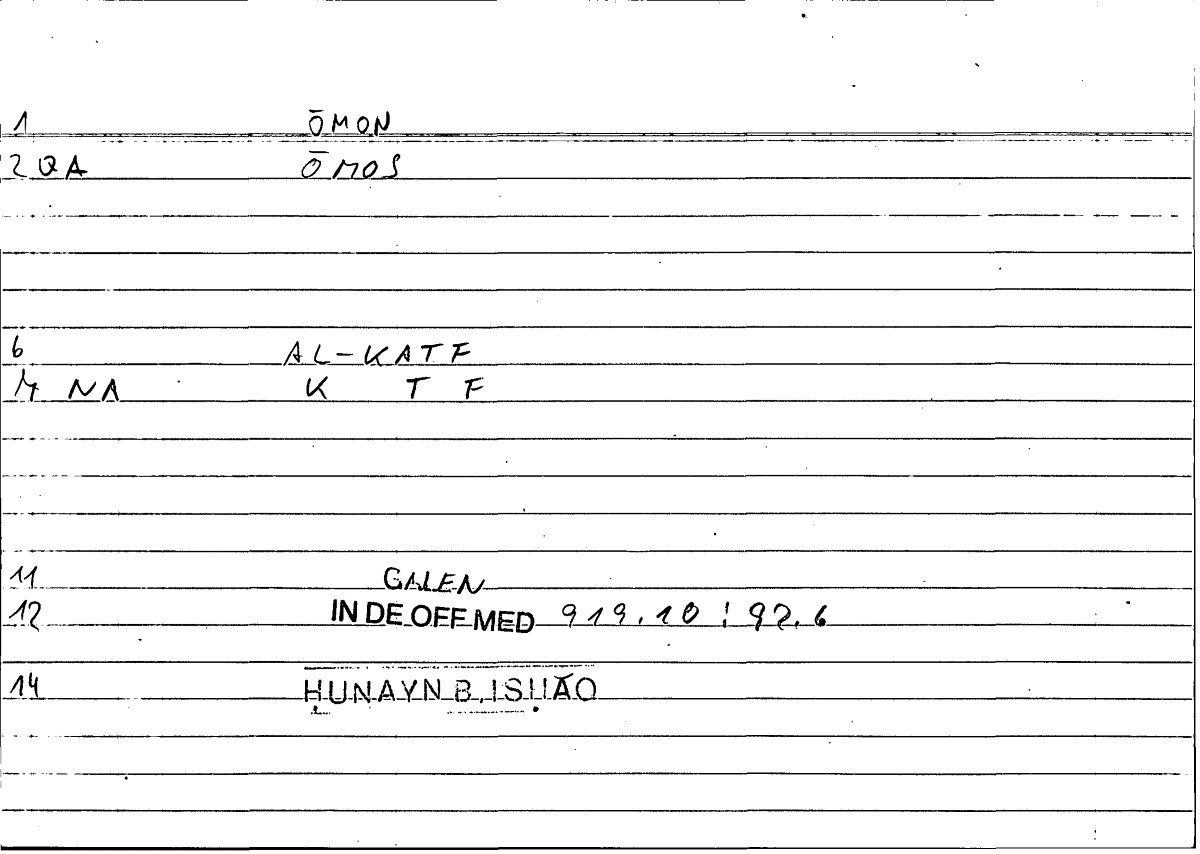 1 ŌMON
2 QA ŌMOS
6 AL-KATF
7 NA K T F
11 GALEN
12 IN DE OFF MED 919.10 : 92.6
14 ḤUNAYN B. ISḤĀQ